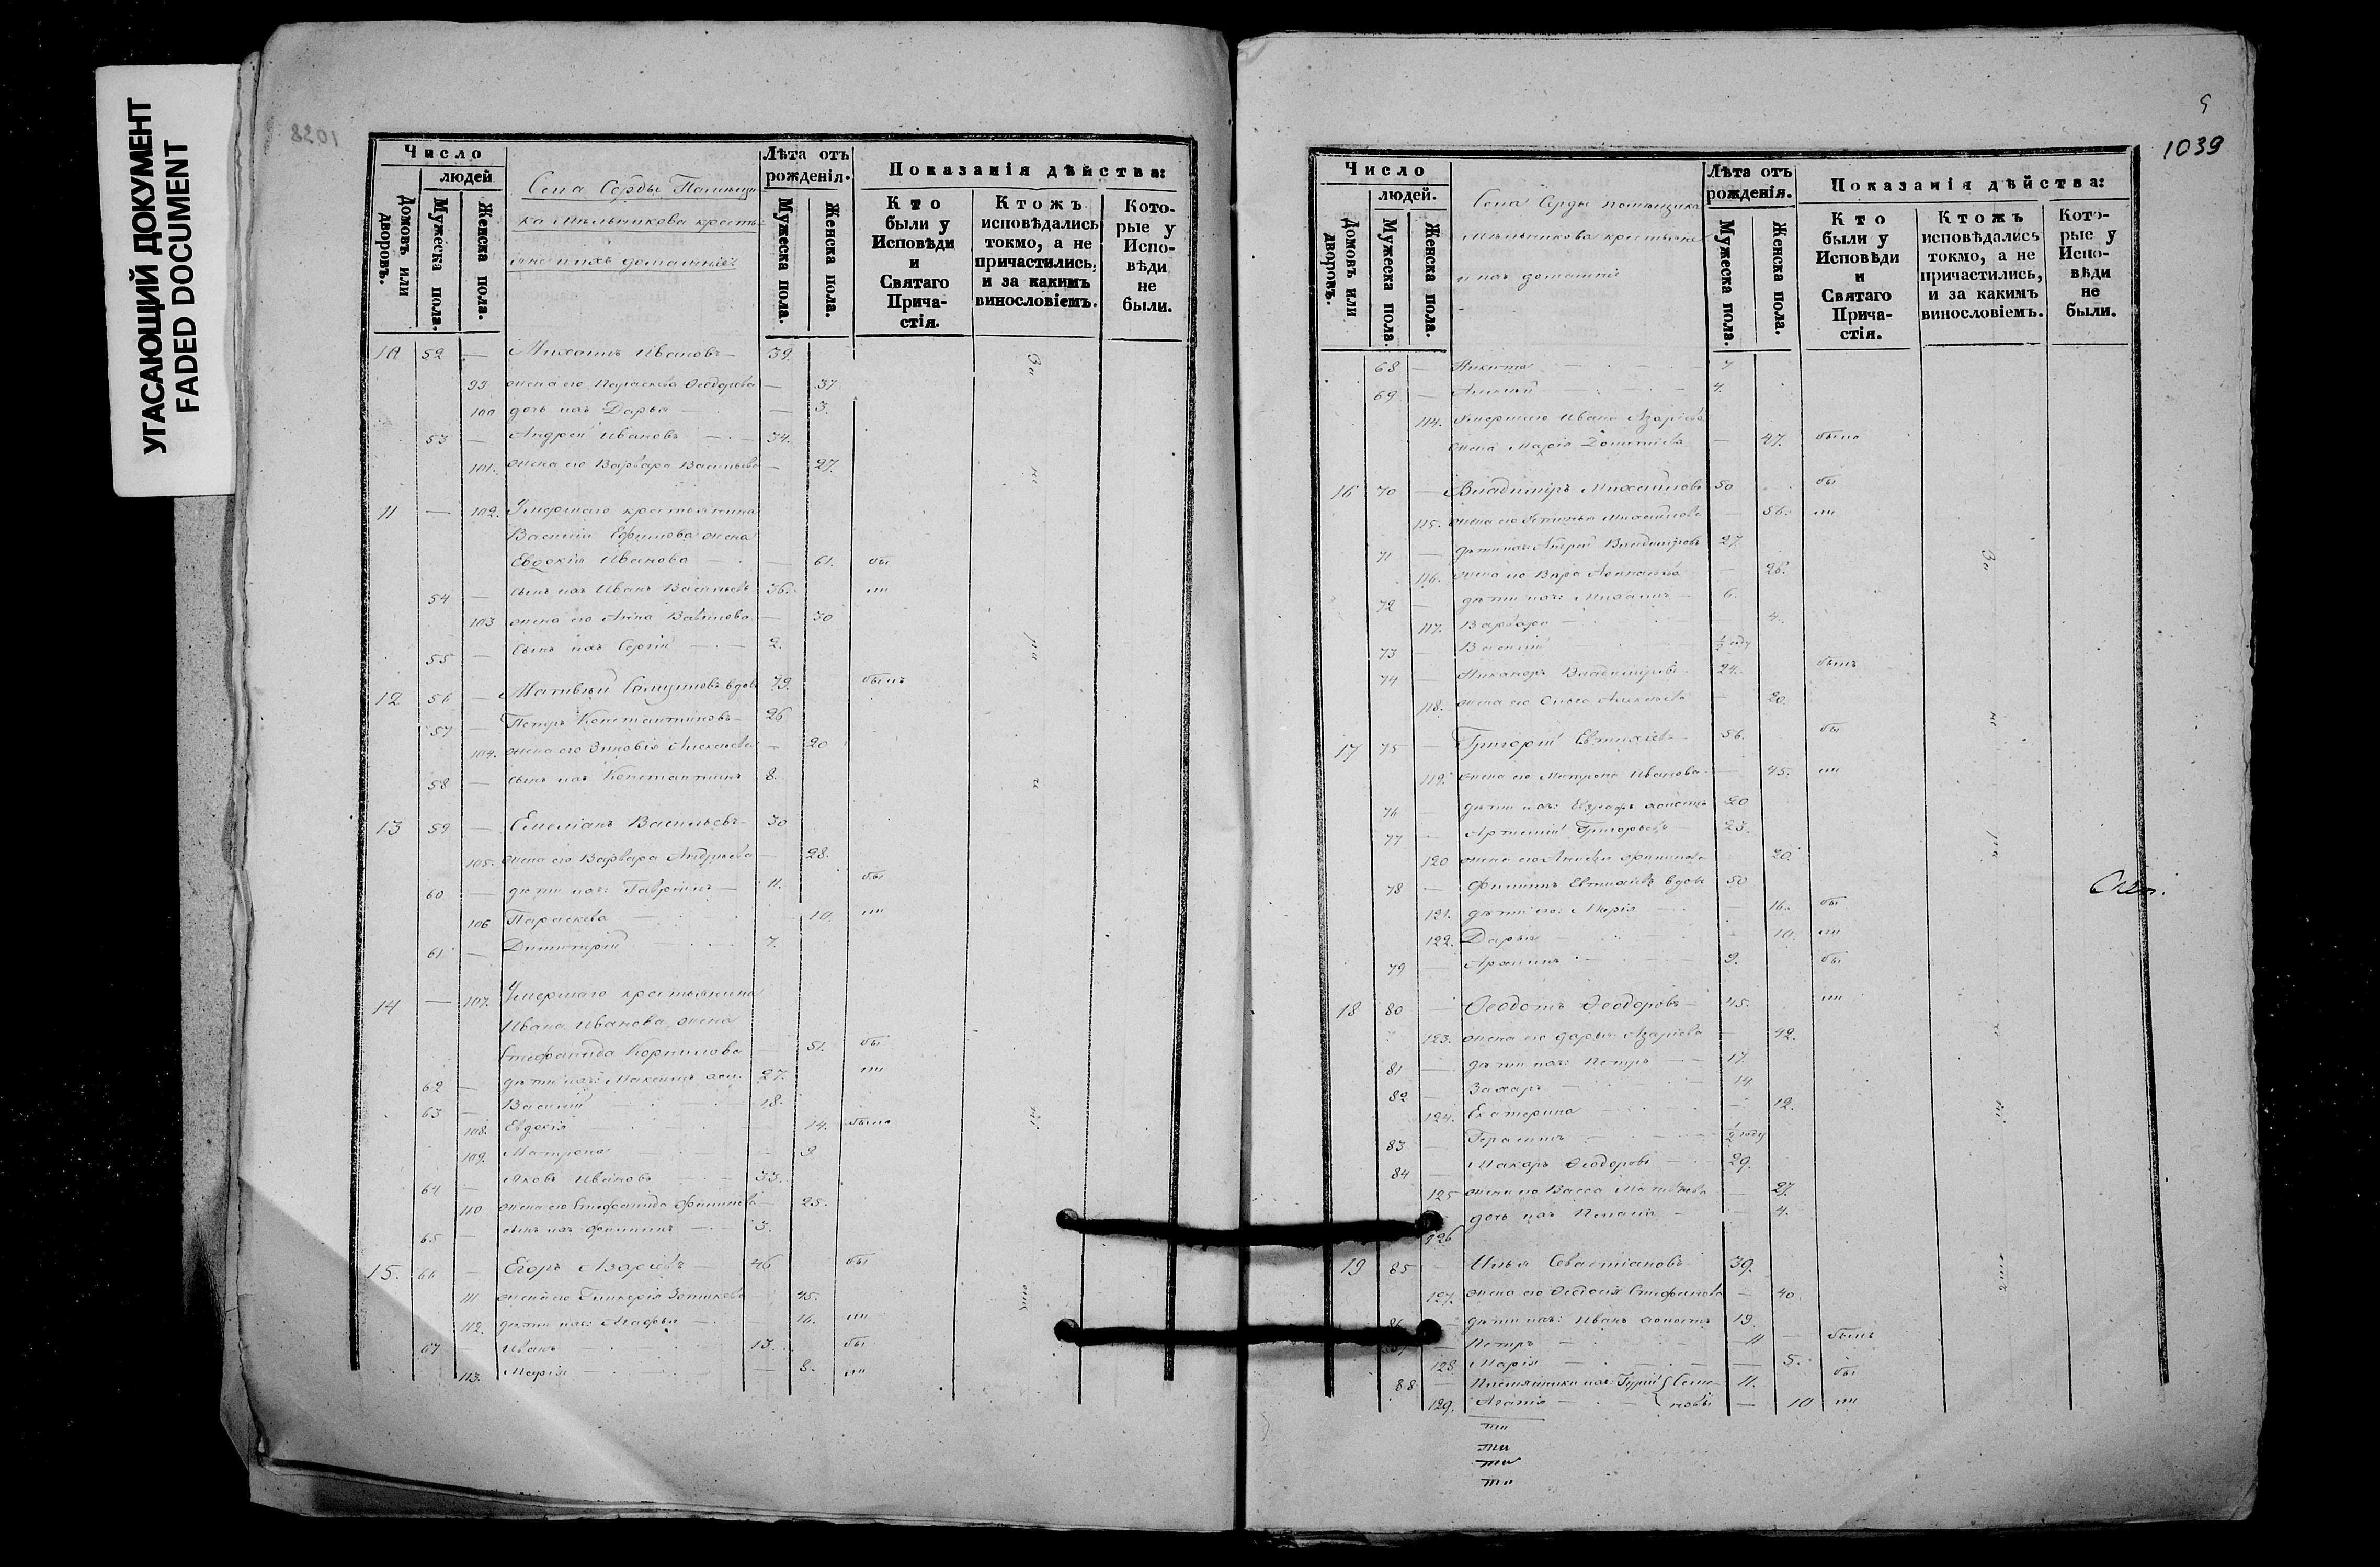 УГАСАЮЩИЙ ДОКУМЕНТ
FADED DOCUMENT
1038
Число
людей
Домовъ или дворовъ.
Мужеска пола.
Женска пола.
Села Серды Помѣщи
ка Мѣльникова кресть-
яне и ихъ домашніе
Лѣта отъ рожденія.
Мужеска пола.
Женска пола.
Показанія дѣйства:
Кто были у Исповѣди и Святаго Прича-стія.
Ктожъ исповѣдались токмо, а не причастились, и за какимъ винословіемъ.
Кото-рые у Испо-вѣди не были.
10 52 — Михаилъ Ивановъ — 39.
99 жена его Параскева Ѳеодорова — 37
100 дочь ихъ Дарья — 3.
53 — Андрей Ивановъ — 34.
101. жена его Варвара Васильева — 27.
11 — 102. Умершаго крестьянина
Василия Ефимова жена
Евдокія Иванова — 61. бы
54 — сынъ ихъ Иванъ Васильевъ 36. ли
103 жена его Анна — 30
55 — сынъ ихъ Сергій — 2.
12 56 — Матвѣй вдовъ 79. былъ
57 — Петръ Константиновъ — 26
104. жена его Зиновія Алексѣева — 20
58 — сынъ ихъ Константинъ 8.
13 59 — Емеліанъ Васильевъ — 30
105. жена его Варвара Андреева — 28.
60 — дѣти ихъ: Гавріилъ — 11. бы
106 Параскева — 10. ли
61 — Димитрій — 7.
14 — 107. Умершаго крестьянина
Ивана Иванова жена
Стефанида Корнилова — 51. бы
62 — дѣти ихъ: Максимъ 27. ли
63 — Василій — 18.
108. Евдокія — 14. была
109. Матрона — 9
64 — Яковъ Ивановъ — 33.
110 жена его Стефанида Филипова — 25.
65 — сынъ ихъ Филиппъ — 3.
15. 66 — Егоръ Азаріевъ — 46 бы
111 жена его Гликерія Зотикова — 45.
112. дѣти ихъ: Агафья — 16. ли
67 — Иванъ — 13. бы
113. Марія — 8. ли
5
1039
Число
людей.
Домовъ или дворовъ.
Мужеска пола.
Женска пола.
Села Серды помѣщика
Мѣльникова крестьяне
и ихъ домашніе
Лѣта отъ рожденія.
Мужеска пола.
Женска пола.
Показанія дѣйства:
Кто были у Исповѣди и Святаго Прича-стія.
Ктожъ исповѣдались токмо, а не причастились, и за какимъ винословіемъ.
Кото-рые у Испо-вѣди не были.
68 — Никита — 7
69 — Алексѣй — 4.
114. Умершаго Ивана Азаріева
жена Марія — 47. была
16 70 — Владиміръ Михаиловъ 50 бы
115. жена его Устинья Михайлова — 56. ли
71 — дѣти ихъ: Андрей Владиміровъ 27.
116. жена его Вѣра — 26.
72 — дѣти ихъ: Михаилъ — 6.
117. Варвара — 4.
73 — Василій ½ году
74 — Никаноръ Владиміровъ — 24. былъ
118. жена его Алексѣева — 20.
17 75 — Григорій Евтихіевъ — 56. бы
119. жена его Матрона Иванова — 45. ли
76 дѣти ихъ: Евграфъ холостъ 20
77 — Артемій Григорьевъ — 23.
120 жена его Филипова 20.
78 — Филиппъ Евтихіевъ вдовъ 50
121. дѣти его: Марія — 16. бы
122. Дарья — 10. ли
79 — 9. бы
18 80 — Ѳеодотъ Ѳеодоровъ — 45. ли
123. жена его Дарья Азаріева — 42.
81 — дѣти ихъ: Петръ — 17.
82 — Захаръ — 14.
124. Екатерина — 12.
83 — Герасимъ — ½ году
84 — Макаръ Ѳеодоровъ — 29.
125 жена его Васса Матвѣева — 27.
126 дочь ихъ Пелагія — 4.
19 85 — Илья Севастіановъ 39.
127. жена его Ѳеодосія Стефанова — 40.
86 — дѣти ихъ: Иванъ холостъ 19.
87 — Петръ — 11 — былъ
128 Марія — 5.
88 ихъ: Гурій Семе- 11. бы
129. Агапія — новы — 10 ли